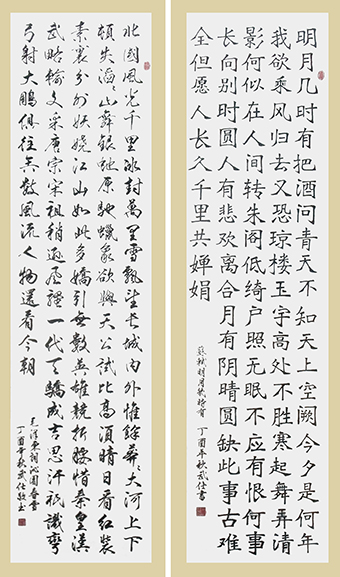 明月几时有把酒问青天不知天上空阙今夕是何年
我欲乘风归去又恐琼楼玉宇高处不胜寒起舞弄清
影何似在人间转朱阁低绮户照无眠不应有恨何事
长向别时圆人有悲欢离合月有阴晴圆缺此事古难
全但愿人长久千里共婵娟
苏轼明月几时有 丁酉年秋武仕书
北國風光千里冰封萬里雪飄望长城内外惟餘莽大河上下
頓失滔〻山舞銀蛇原馳蠟象欲與天公試比高須晴日看红装
素裹分外妖娆江山如此多嬌引無數英雄競折腰惜秦皇漢
武略輸文采唐宗宋祖稍遜風騷一代天驕成吉思汗衹識彎
弓射大鵰俱往矣數風流人物還看今朝
毛泽东词沁园春雪
丁酉年秋武仕敬书